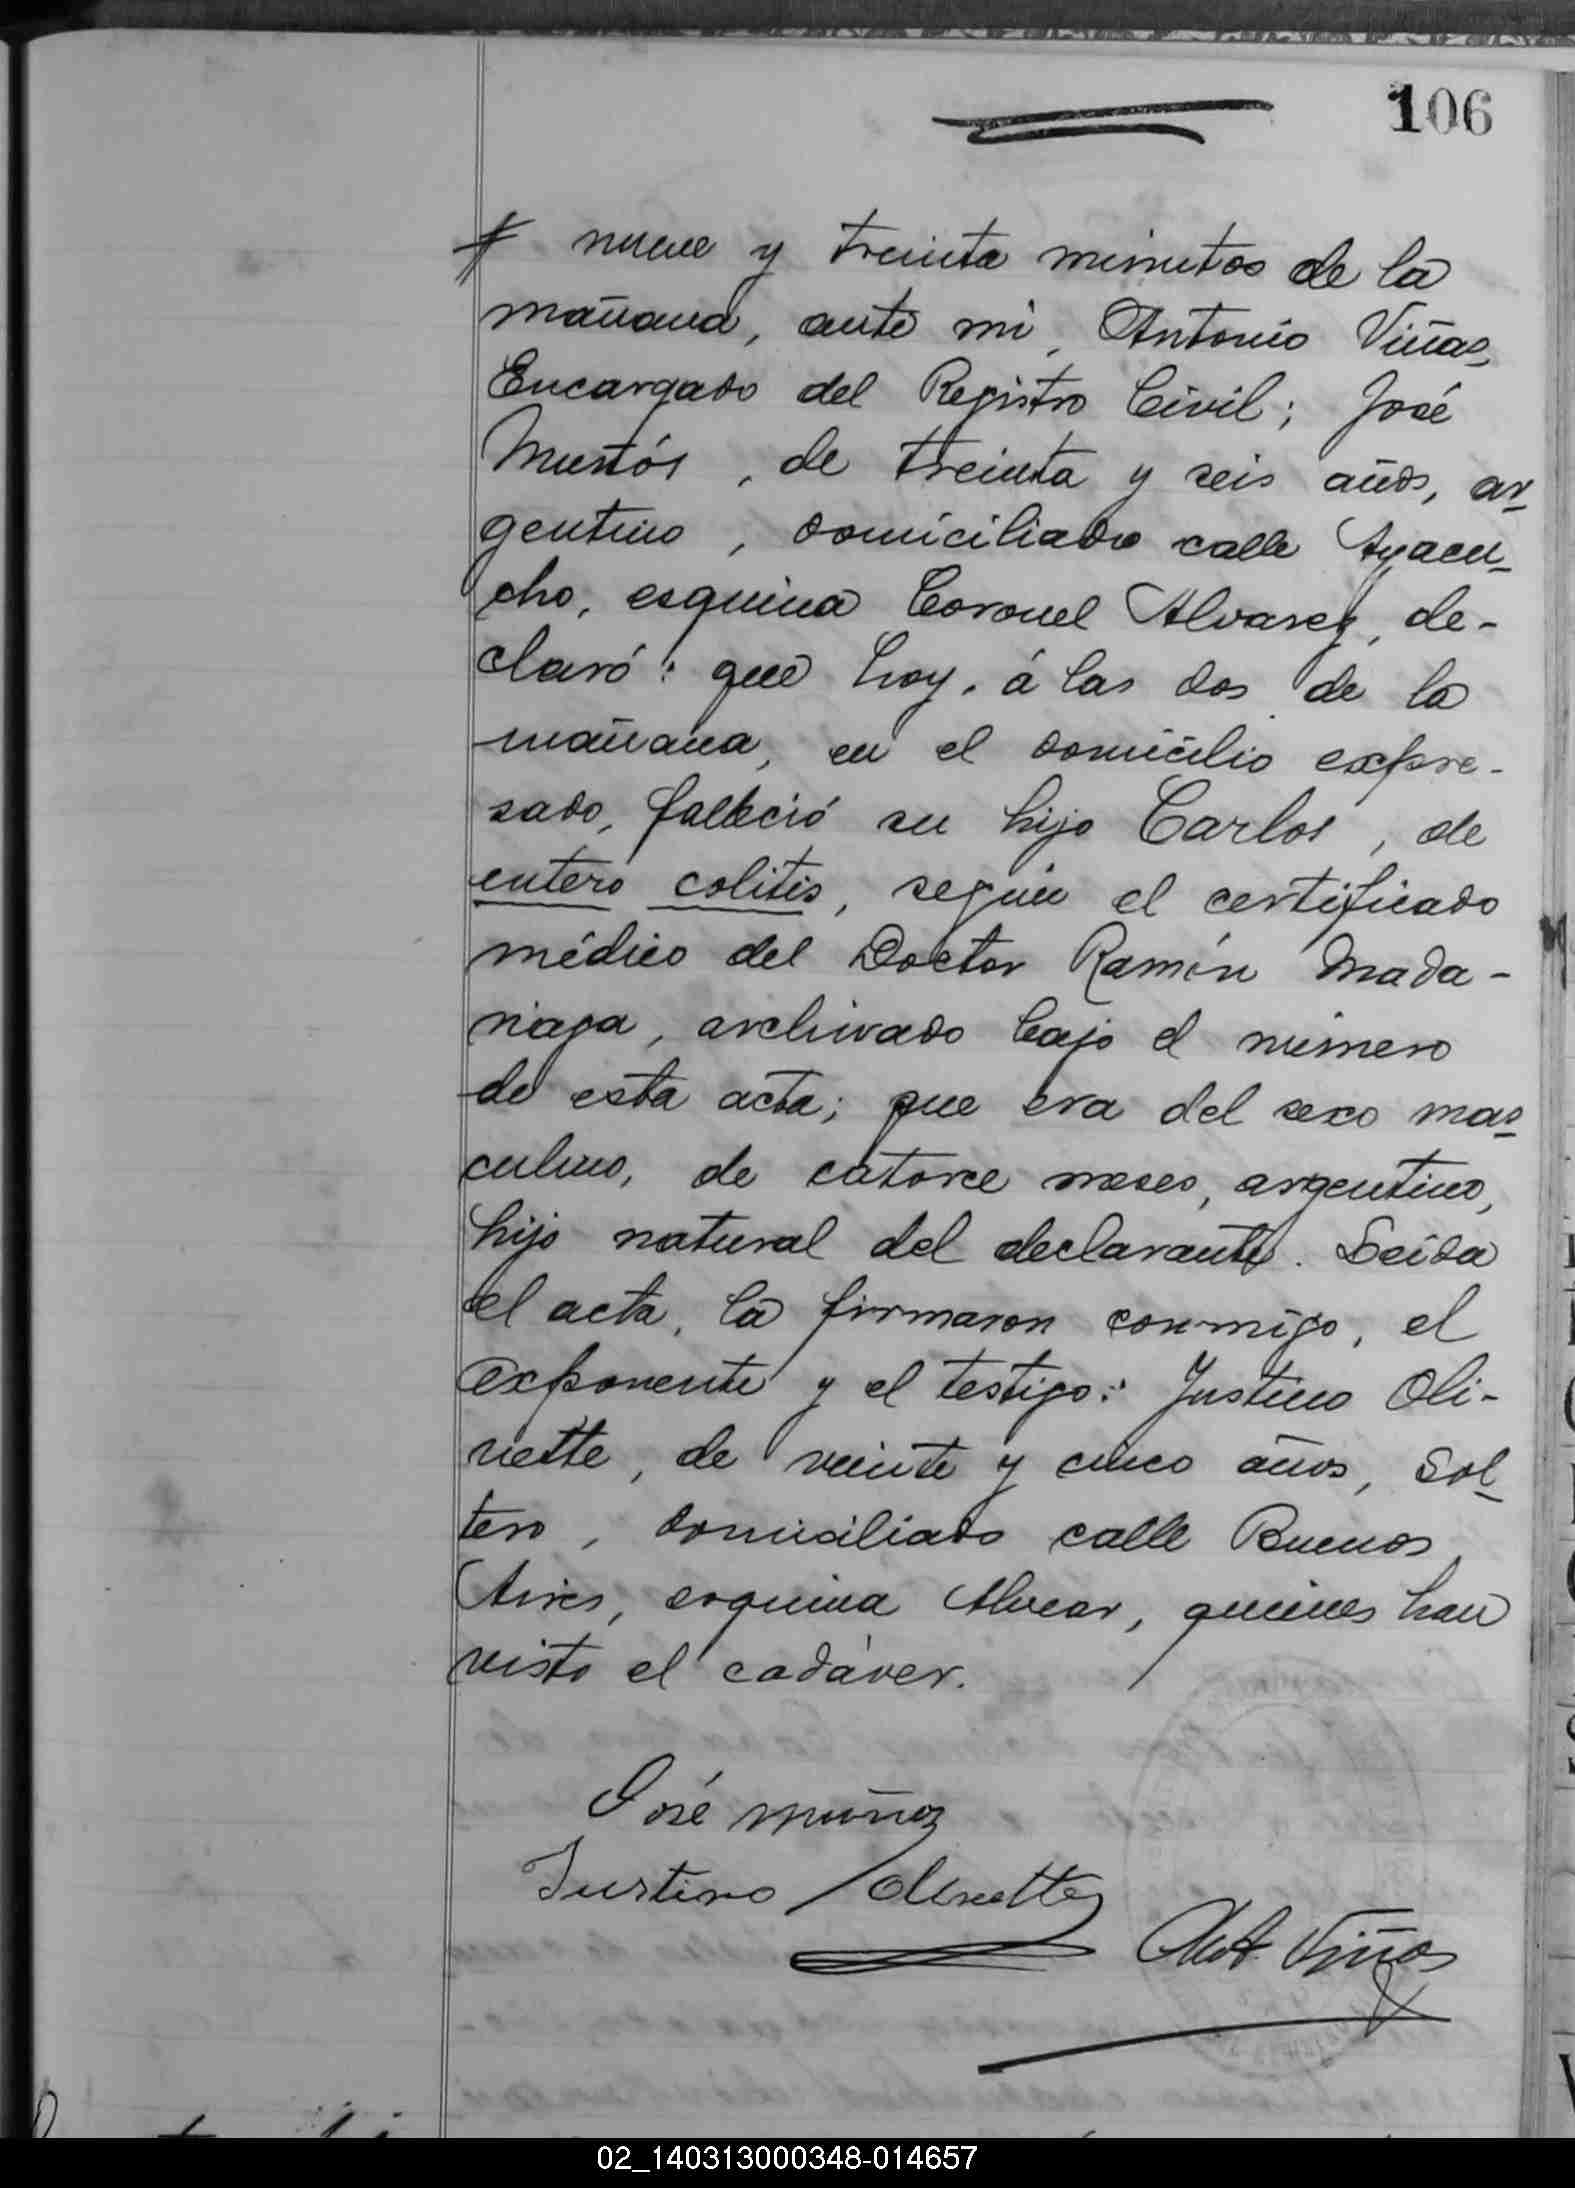 106
nueve y treinta minutos de la
mañana, ante mi, Antonio Viñas,
Encargado del Registro Civil; José
Muñós, de treinta y seis años, ar-
gentino, domiciliado calle Ayacu-
cho, esquina Coronel Alvarez, de-
claró: que hoy, á las dos de la
mañana, en el domicilio expre-
sado, falleció su hijo Carlos, de
entero colitis, según el certificado
médico del Doctor Ramón Mada-
riaga, archivado bajo el número
de esta acta; que era del sexo mas-
culino, de catorce meses, argentino,
hijo natural del declarante. Leida
el acta, la firmaron conmigo, el
exponente y el testigo: Justino Oli-
vette, de veinte y cinco años, sol-
tero, domiciliado calle Buenos
Aires, esquina Alvear, quienes han
visto el cadáver.
José Muñoz
Justino Olivette
Ant. Viñas
02_140313000348-014657